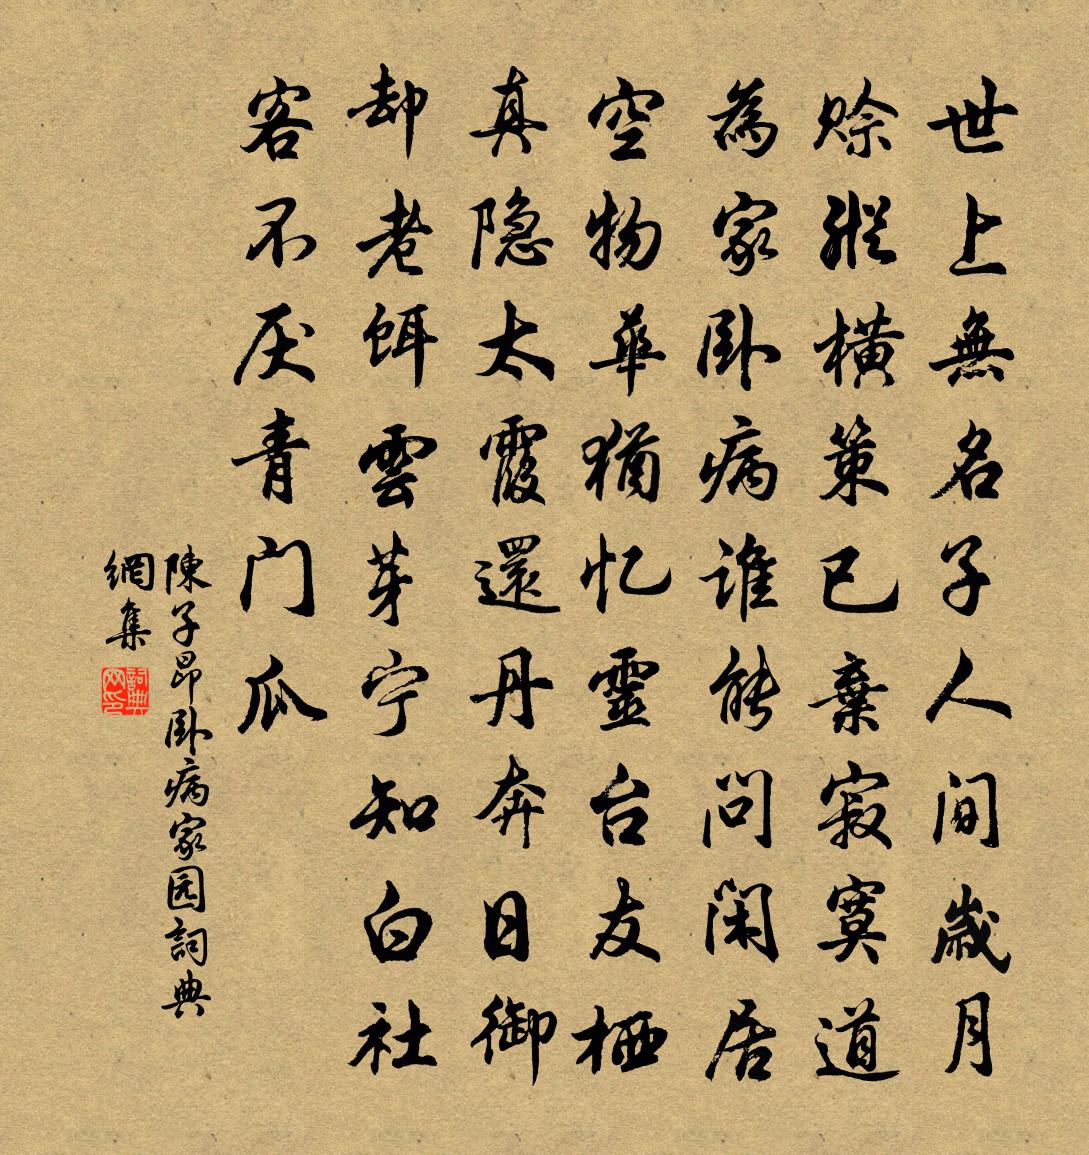 世上無名子人间歲月
赊縱橫策已棄寂寞道
為家卧病谁能问闲居
空物華猶忆靈台友栖
真隐太霞還丹奔日御
却老饵雲芽宁知白社
客不厌青门瓜
陳子昂卧病家园詞典
網集
詞典
网印